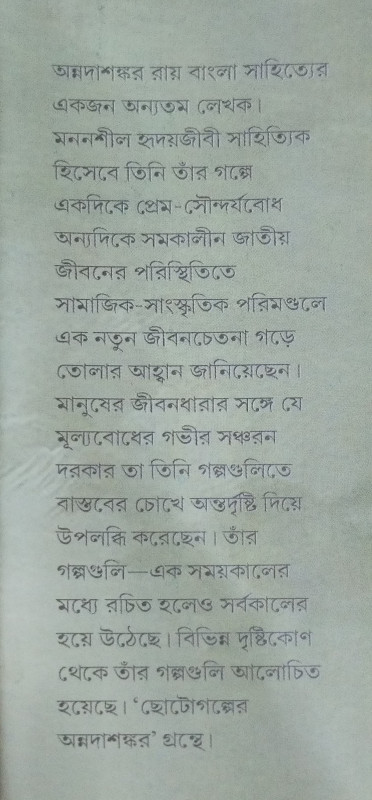 অন্নদাশঙ্কর রায় বাংলা সাহিত্যের
একজন অন্যতম লেখক।
মননশীল হৃদয়জীবী সাহিত্যিক
হিসেবে তিনি তাঁর গল্পে
একদিকে প্রেম-সৌন্দর্যবোধ
অন্যদিকে সমকালীন জাতীয়
জীবনের পরিস্থিতিতে
সামাজিক-সাংস্কৃতিক পরিমণ্ডলে
এক নতুন জীবনচেতনা গড়ে
তোলার আহ্বান জানিয়েছেন।
মানুষের জীবনধারার সঙ্গে যে
মূল্যবোধের গভীর সঞ্চরন
দরকার তা তিনি গল্পগুলিতে
বাস্তবের চোখে অন্তর্দৃষ্টি দিয়ে
উপলব্ধি করেছেন। তাঁর
গল্পগুলি—এক সময়কালের
মধ্যে রচিত হলেও সর্বকালের
হয়ে উঠেছে। বিভিন্ন দৃষ্টিকোণ
থেকে তাঁর গল্পগুলি আলোচিত
হয়েছে। ‘ছোটোগল্পের
অন্নদাশঙ্কর’ গ্রন্থে।